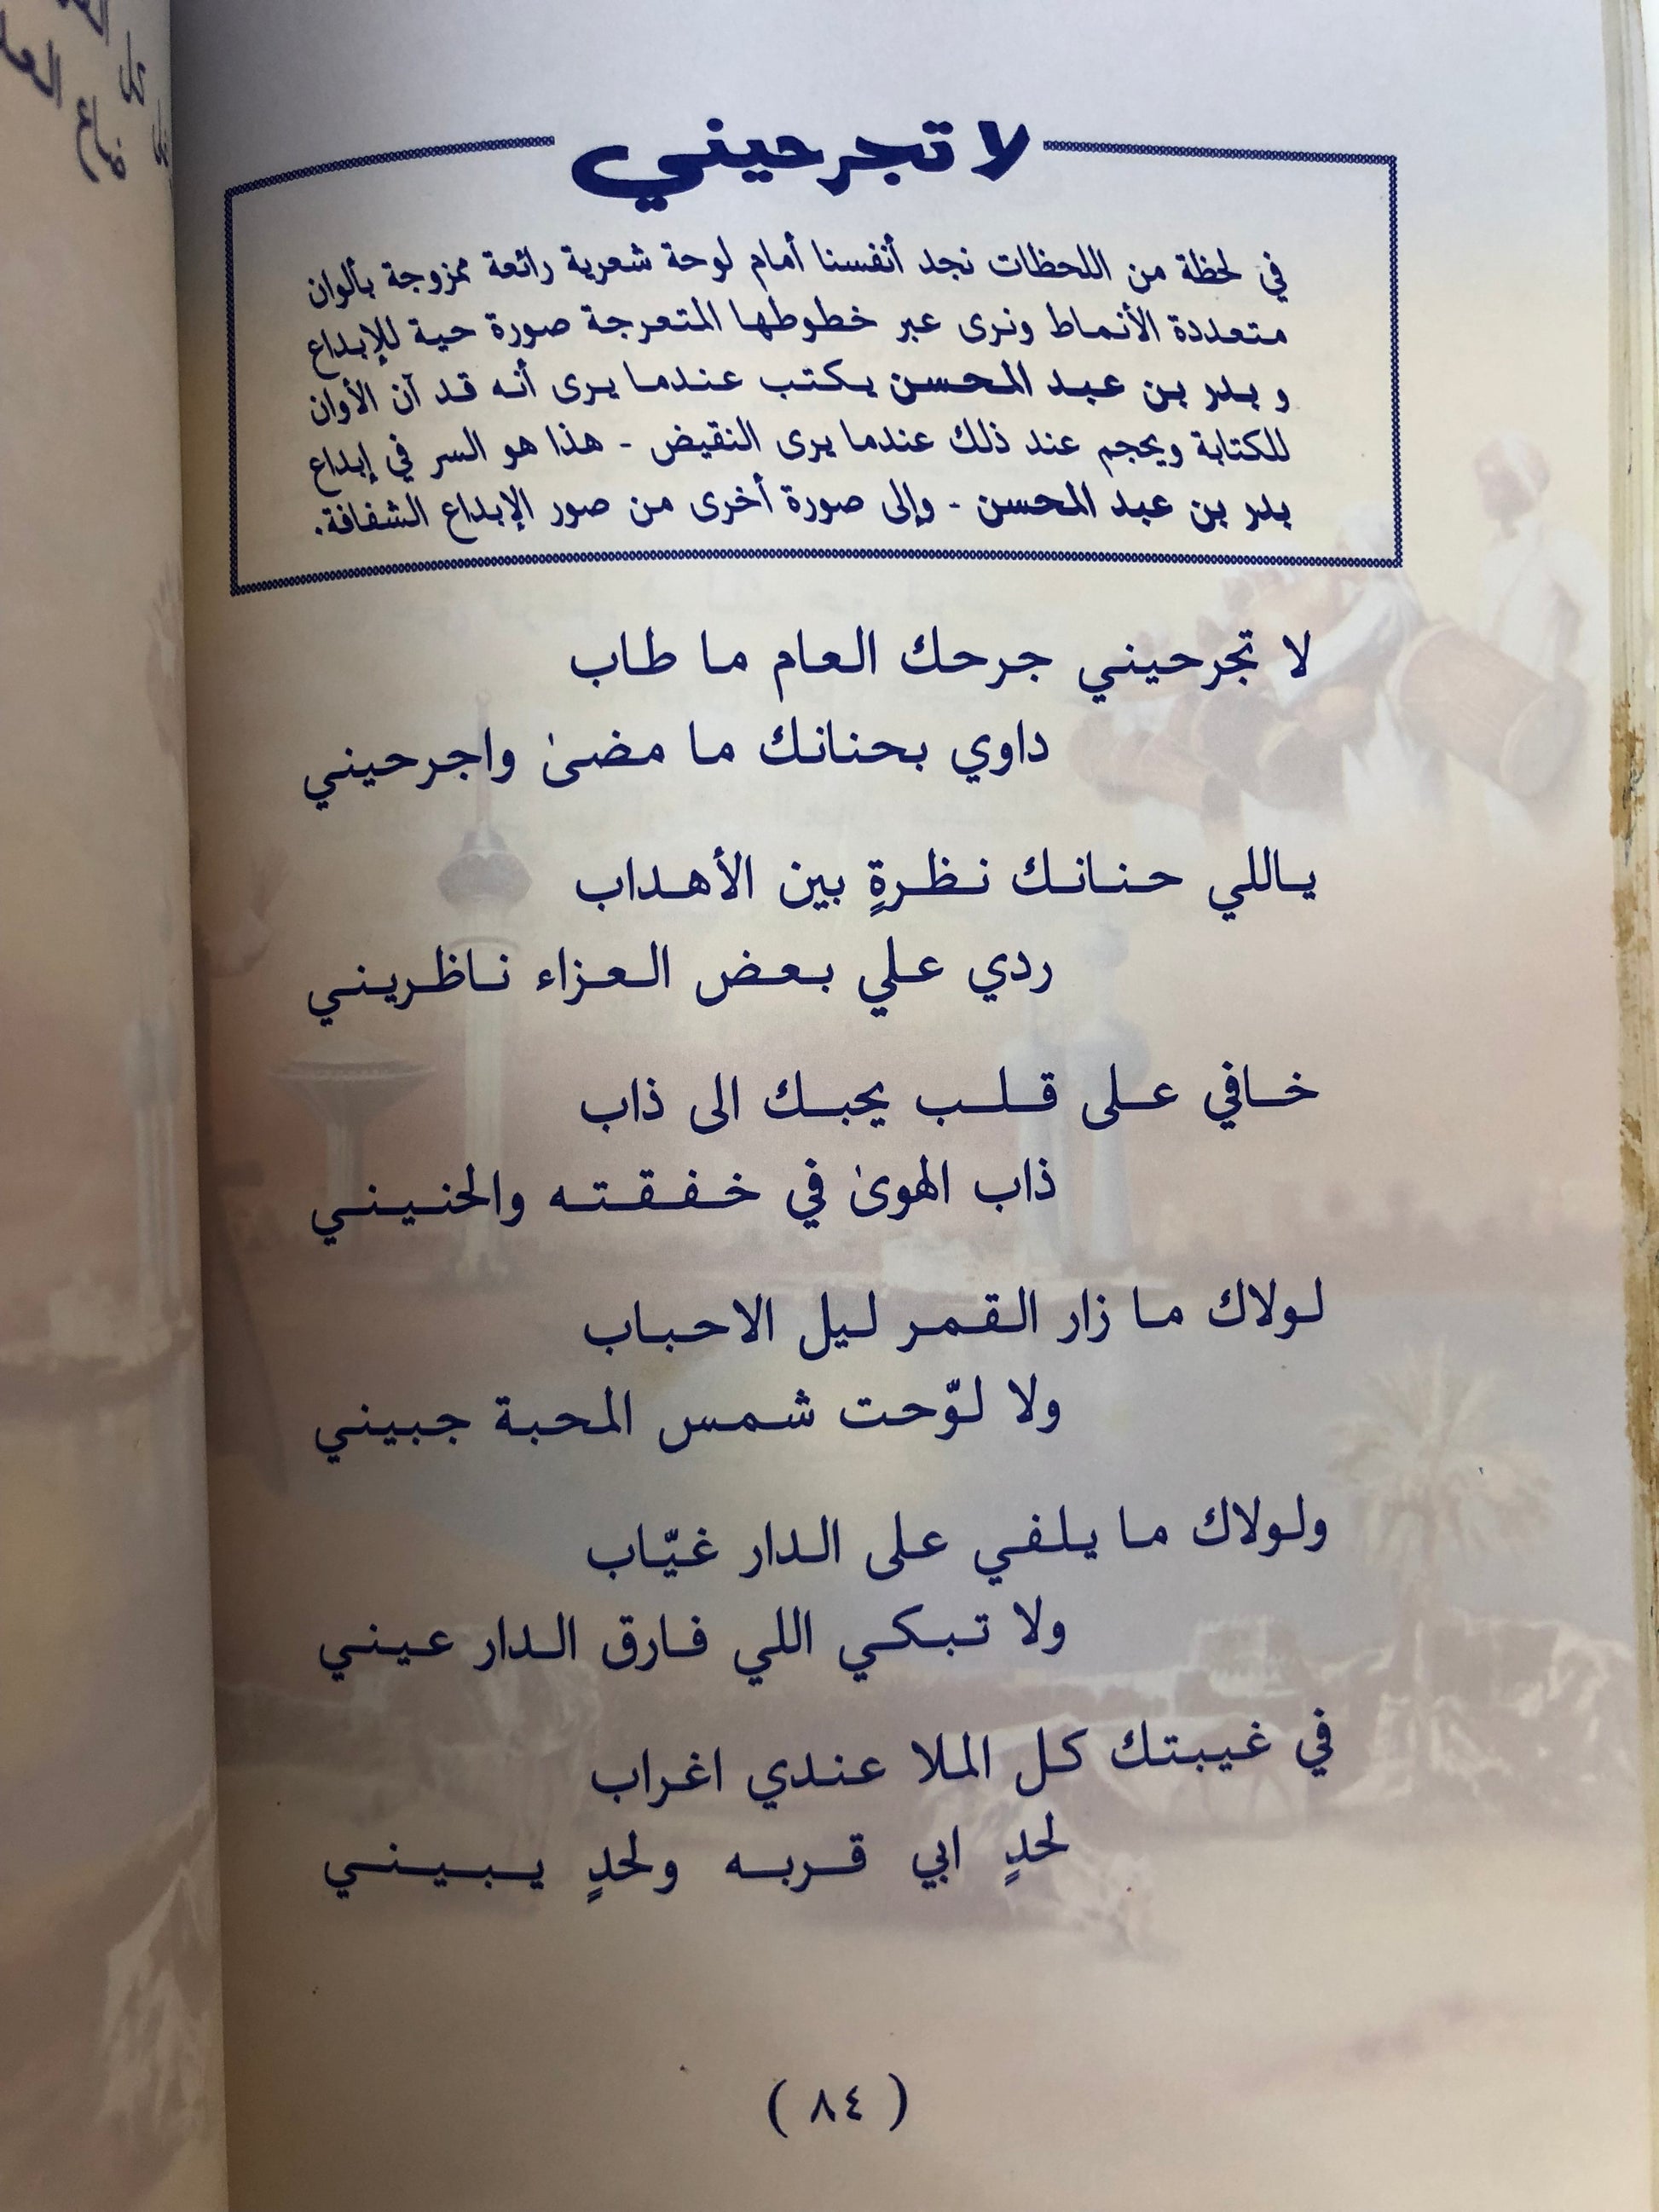 لا تجرحيني
في لحظة من اللحظات نجد أنفسنا أمام لوحة شعرية رائعة ممزوجة بألوان
متعددة الأنماط ونرى عبر خطوطها المتعرجة صورة حية للإبداع
و بدر بن عبد المحسن يكتب عندما يرى أنه قد آن الأوان
للكتابة ويحجم عند ذلك عندما يرى النقيض - هذا هو السر في إبداع
بدر بن عبد المحسن - وإلى صورة أخرى من صور الإبداع الشفافة.
لا تجرحيني جرحك العام ما طاب
داوي بحنانك ما مضىٰ واجرحيني
ياللي حنانك نظرةٍ بين الأهداب
ردي علي بعض العزاء ناظريني
خافي على قلب يحبك الى ذاب
ذاب الهوىٰ في خفقته والحنيني
لولاك ما زار القمر ليل الاحباب
ولا لوّحت شمس المحبة جبيني
ولولاك ما يلفي على الدار غيّاب
ولا تبكي اللي فارق الدار عيني
في غيبتك كل الملا عندي اغراب
لحدٍ ابي قربه ولحدٍ يبيني
( ٨٤ )